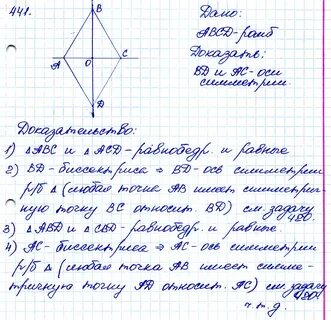 441.
Дано:
ABCD-ромб
Доказать:
BD и AC-оси
симметрии.
B
A
O
C
D
Доказательство:
1) △ABC и △ACD-равнобедр. и равные
2) BD-биссектриса ⇒ BD-ось симметрии
р/б △ (любая точка AB имеет симметрич-
ную точку BC относит. BD) см. задачу
420.
3) △ABD и △CBD-равнобедр. и равные.
4) AC-биссектриса ⇒ AC-ось симметрии
р/б △ (любая точка AB имеет симме-
тричную точку AD относит. AC) см. задачу
420.
ч.т.д.